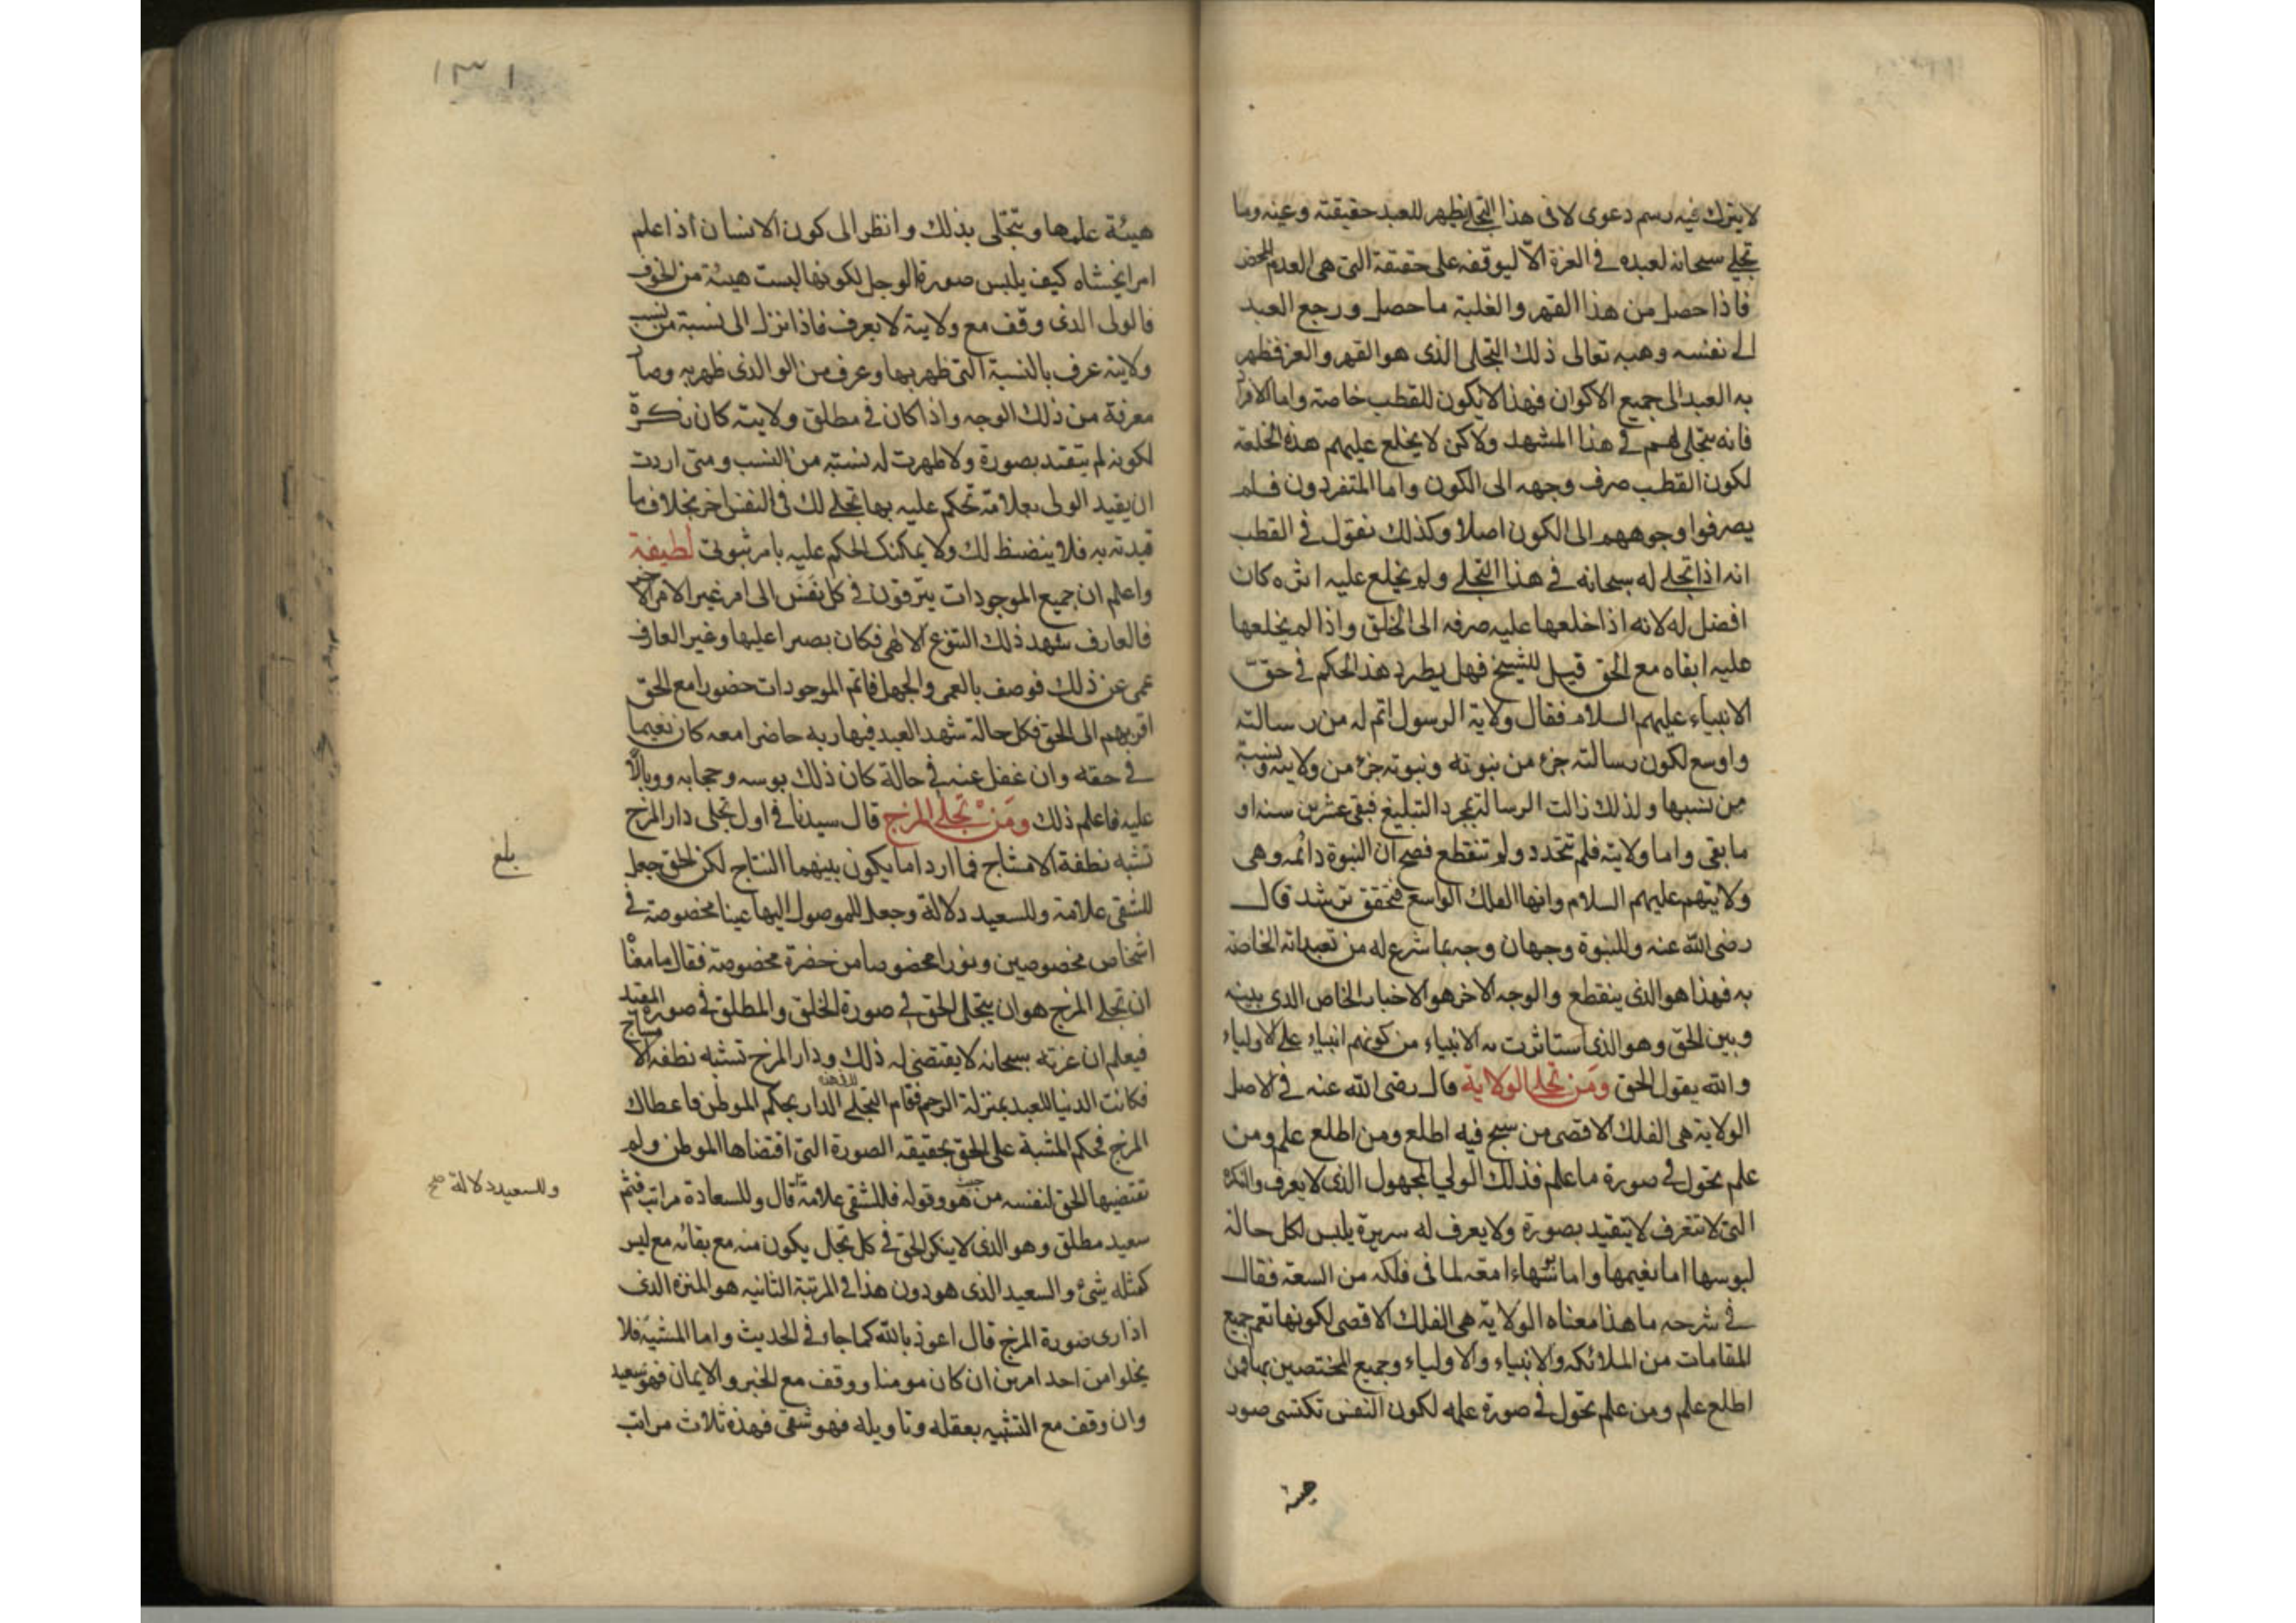 لا يترك فيه رسم دعوى لا فى هذا التجلى يظهر للعبد حقيقته وعينه وما
تجلى سبحانه لعبده فى العزة الّا ليوقفه على حقيقة التى هى العدم المحض
فاذا حصل من هذا القهر والغلبة ما حصل ورجع العبد
الى نفسه وهبه تعالى ذلك التجلى الذى هو القهر والعز فظهر
به العبد الى جميع الاكوان فهذا لا يكون للقطب خاصة واما الافراد
فانه يتجلى لهم فى هذا المشهد ولاكن لا يخلع عليهم هذه الخلعة
لكون القطب صرف وجهه الى الكون واما المتفردون فلم
يصرفوا وجوههم الى الكون اصلا وكذلك نقول فى القطب
انه اذا تجلى له سبحانه فى هذا التجلى ولم يخلع عليه اثره كان
افضل له لانه اذا خلعها عليه صرفه الى الخلق واذا لم يخلعها
عليه ابقاه مع الحق قيل للشيخ فهل يطرد هذا الحكم فى حقّ
الانبياء عليهم السلام فقال ولاية الرسول اتم له من رسالته
واوسع لكون رسالته جزء من نبوته ونبوته جزء من ولايته ونسبة
من نسبها ولذلك زالت الرسالة بمجرد التبليغ فبقى عشرين سنه او
ما بقى واما ولايته فلم تتحدد ولم تنقطع فصح ان النبوة دائمه وهى
ولايتهم عليهم السلام وانها الفلك الواسع فتحقق ترشد قال
رضى الله عنه وللنبوة وجهان وجه بما شرع له من تعبداته الخاصة
به فهذا هو الذى ينقطع والوجه الاخر هو الاخبار الخاص الذى بينه
وبين الحق وهو الذى استاثرت به الانبياء من كونهم انبياء على الاولياء
والله يقول الحق ومن تجلى الولاية قال رضى الله عنه فى الاصل
الولاية هى الفلك الاقصى من سبح فيه اطلع ومن اطلع علم ومن
علم تحول فى صورة ما علم فذلك الولى المجهول الذى لا يعرف والنكرة
التى لا تتعرف لا يتقيد بصورة ولا يعرف له سريرة يلبس لكل حالة
لبوسها اما نعيمها واما بؤسها امعة لما فى فلكه من السعة فقال
فى شرحه ما هذا معناه الولاية هى الفلك الاقصى لكونها تعم جميع
المقامات من الملائكه والانبياء والاولياء وجميع المختصين بها فمن
اطلع علم ومن علم تحول فى صورة علمه لكون النفس تكتسى صور
هيئة
١٣١
هيئة علمها وتتجلى بذلك وانظر الى كون الانسان اذا علم
امرا يخشاه كيف يلبس صورة الوجل لكونها لبست هيئة من الخوف
فالولى الذى وقف مع ولايته لا يعرف فاذا نزل الى نسبة من نسب
ولايته عرف بالنسبة التى ظهر بها وعرف من الو الذى ظهر به وصار
معرفة من ذلك الوجه واذا كان فى مطلق ولايته كان نكرة
لكونه لم يتقيد بصورة ولا ظهرت له نسبته من النسب ومتى اردت
ان يقيد الولى بعلامة تحكم عليه بها تجلى لك فى النفس اخر بخلاف ما
قيدته به فلا ينضبط لك ولا يمكنك الحكم عليه بامر ثبوتى لطيفة
واعلم ان جميع الموجودات يترقون فى كل نَفَس الى امر غير الامر الاخر
فالعارف شهد ذلك التنوع الالهى فكان بصيرا عليها وغير العارف
عمى عن ذلك فوصف بالعمى والجهل فاتم الموجودات حضورا مع الحق
اقربهم الى الحق فكل حالة شهد العبد فيها ربه حاضرا معه كان نعيما
فى حقه وان غفل عنه فى حالة كان ذلك بوسه وحجابه ووبالًا
عليه فاعلم ذلك ومَن تجلى المزج قال سيدنا فى اول تجلى دار المزج
تشبه نطفة الامشاج فما اردا ما يكون بينهما النتاج لكن الحق جعل
بلغ
للشقى علامة وللسعيد دلالة وجعل للموصول اليها عينا مخصوصة فى
اشخاص مخصوصين ونورا مخصوصا من حضرة مخصوصة فقال ما معناه
ان تجلى المزج هو ان يتجلى الحق فى صورة الخلق والمطلق فى صورة المقيد
فيعلم ان عزته سبحانه لا يقتضى له ذلك ودار المزج تشبه نطفه الامشاج
فكانت الدنيا للعبد بمنزلة الرحم فقام التجلى لهذه الدار بحكم الموطن فاعطاك
المزج فحكم المشبة على الحق بحقيقة الصورة التى اقتضاها الموطن ولم
تقتضيها الحق لنفسه من حيث هو وقوله فللشقى علامة قال وللسعادة مراتب فثم
وللسعيد دلالة صح
سعيد مطلق وهو الذى لا ينكر الحق فى كل تجل يكون منه مع بقائه مع ليس
كمثله شئ والسعيد الذى هو دون هذا فى المرتبة الثانيه هو المنزه الذى
اذا راى صورة المزج قال اعوذ بالله كما جاء فى الحديث واما المشبّه فلا
يخلوا من احد امرين ان كان مومنا ووقف مع الخبر والايمان فهو سعيد
وان وقف مع التشبيه بعقله وتاويله فهو شقى فهذه ثلاث مراتب